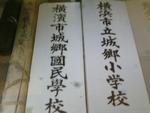 橫濱市城鄉國民學校
横浜市立城郷小学校